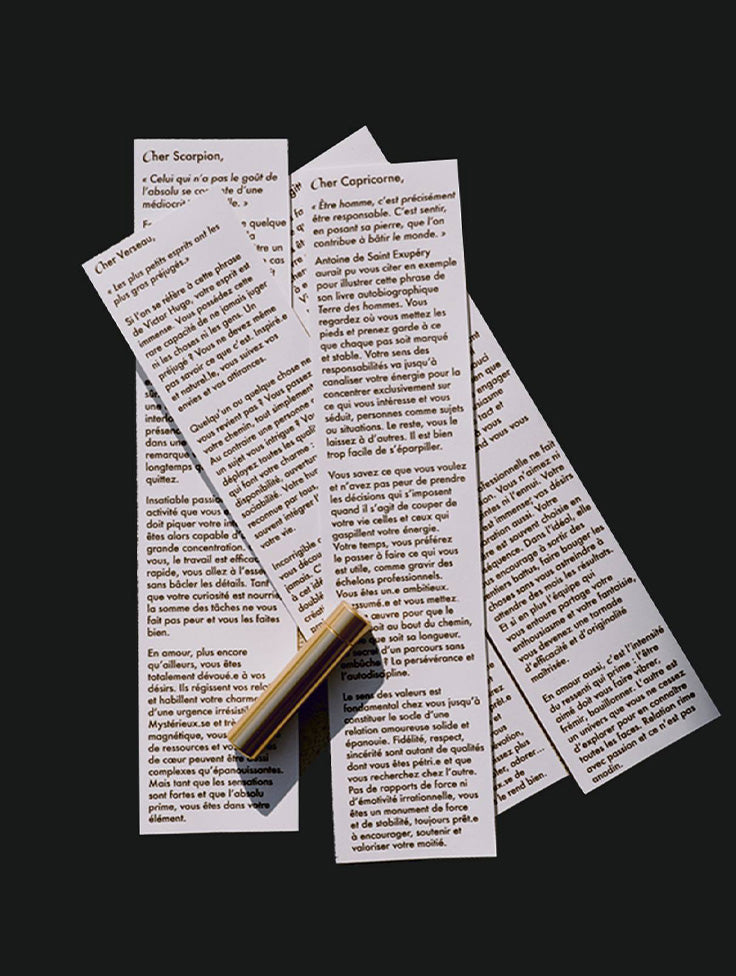 Cher Scorpion,
« Celui qui n'a pas le goût de
l'absolu se d'une
médiocrit lle. »
quelque
la
tre un
sur
une
interlo
présen
dans une
remarque
longtemps q
quittez.
Insatiable passio
activité que vous
doit piquer votre in
êtes alors capable d'
grande concentration.
vous, le travail est efficac
rapide, vous allez à l'esse
sans bâcler les détails. Tant
que votre curiosité est nourrie
la somme des tâches ne vous
fait pas peur et vous les faites
bien.
En amour, plus encore
qu'ailleurs, vous êtes
totalement dévoué.e à vos
désirs. Ils régissent vos rela
et habillent votre charme
d'une urgence irrésisti
Mystérieux.se et trè
magnétique, vous
de ressources et vo
de cœur peuvent être aussi
complexes qu'épanouissantes.
Mais tant que les sensations
sont fortes et que l'absolu
prime, vous êtes dans votre
élément.
Cher Verseau,
« Les plus petits esprits ont les
plus gros préjugés.»
Si l'on se réfère à cette phrase
de Victor Hugo, votre esprit est
immense. Vous possédez cette
rare capacité de ne jamais juger
ni les choses ni les gens. Un
préjugé ? Vous ne devez même
pas savoir ce que c'est. Inspiré.e
et naturel.le, vous suivez vos
envies et vos attirances.
Quelqu'un ou quelque chose ne
vous revient pas ? Vous passez
votre chemin, tout simplement
Au contraire une personne
un sujet vous intrigue ? Vo
déployez toutes les quali
qui font votre charme :
disponibilité, ouvertur
sociabilité. Votre hum
reconnue par tous,
souvent intégrer l'
votre vie.
Incorrigible
vous décou
jamais. C
à cet idé
double
créat
Cher Capricorne,
« Être homme, c'est précisément
être responsable. C'est sentir,
en posant sa pierre, que l'on
contribue à bâtir le monde. »
Antoine de Saint Exupéry
aurait pu vous citer en exemple
pour illustrer cette phrase de
son livre autobiographique
Terre des hommes. Vous
regardez où vous mettez les
pieds et prenez garde à ce
que chaque pas soit marqué
et stable. Votre sens des
responsabilités va jusqu'à
canaliser votre énergie pour la
concentrer exclusivement sur
ce qui vous intéresse et vous
séduit, personnes comme sujets
ou situations. Le reste, vous le
laissez à d'autres. Il est bien
trop facile de s'éparpiller.
Vous savez ce que vous voulez
et n'avez pas peur de prendre
les décisions qui s'imposent
quand il s'agit de couper de
votre vie celles et ceux qui
gaspillent votre énergie.
Votre temps, vous préférez
le passer à faire ce qui vous
est utile, comme gravir des
échelons professionnels.
Vous êtes un.e ambitieux.
ssumé.e et vous mettez
œuvre pour que le
soit au bout du chemin,
que soit sa longueur.
secret d'un parcours sans
embûche ? La persévérance et
l'autodiscipline.
Le sens des valeurs est
fondamental chez vous jusqu'à
constituer le socle d'une
relation amoureuse solide et
épanouie. Fidélité, respect,
sincérité sont autant de qualités
dont vous êtes pétri.e et que
vous recherchez chez l'autre.
Pas de rapports de force ni
d'émotivité irrationnelle, vous
êtes un monument de force
et de stabilité, toujours prêt.e
à encourager, soutenir et
valoriser votre moitié.
uci
en
engager
siasme
tard et
nd vous vous
essionnelle ne fait
Vous n'aimez ni
ni l'ennui. Votre
immense, vos désirs
ration aussi. Votre
e est souvent choisie en
séquence. Dans l'idéal, elle
vous encourage à sortir des
entiers battus, faire bouger les
choses sans vous astreindre à
attendre des mois les résultats.
Et si en plus l'équipe qui
vous entoure partage votre
enthousiasme et votre fantaisie,
vous devenez une tornade
d'efficacité et d'originalité
maîtrisée.
En amour aussi, c'est l'intensité
du ressenti qui prime : l'être
aimé doit vous faire vibrer,
frémir, bouillonner. L'autre est
un univers que vous ne cessez
d'explorer pour en connaître
toutes les faces. Relation rime
avec passion et ce n'est pas
anodin.
nez plus
ez, adorer...
x.se de
le rend bien.